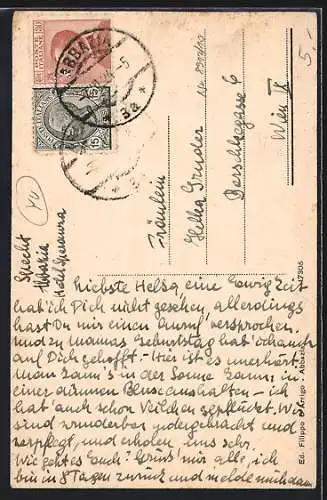 ABBAZIA
3a
5.-
POSTE ITALIANE
15
Fräulein
Helka Gruder
Borschkegasse 6
Wien IX
Specht
Abbazia
Hotel Speranza
Liebste Helka, eine Ewig Zeit
hab' ich Dich nicht gesehen, allerdings
hast Du mir einen Anruf versprochen.
Und zu Mamas Geburtstag hab' ich auch
auf Dich gehofft. - Hier ist es unerhört.
Man kann's in der Sonne kaum, in
einer dünnen Bluse aushalten - ich
hab' auch schon Veilchen gepflückt. Wir
sind wunderbar untergebracht und
verpflegt, und erholen uns sehr.
Wie geht es Euch? Grüss' mir alle, ich
bin in 8 Tagen zurück und melde mich dann
Ed. Filippo Abbazia 17306